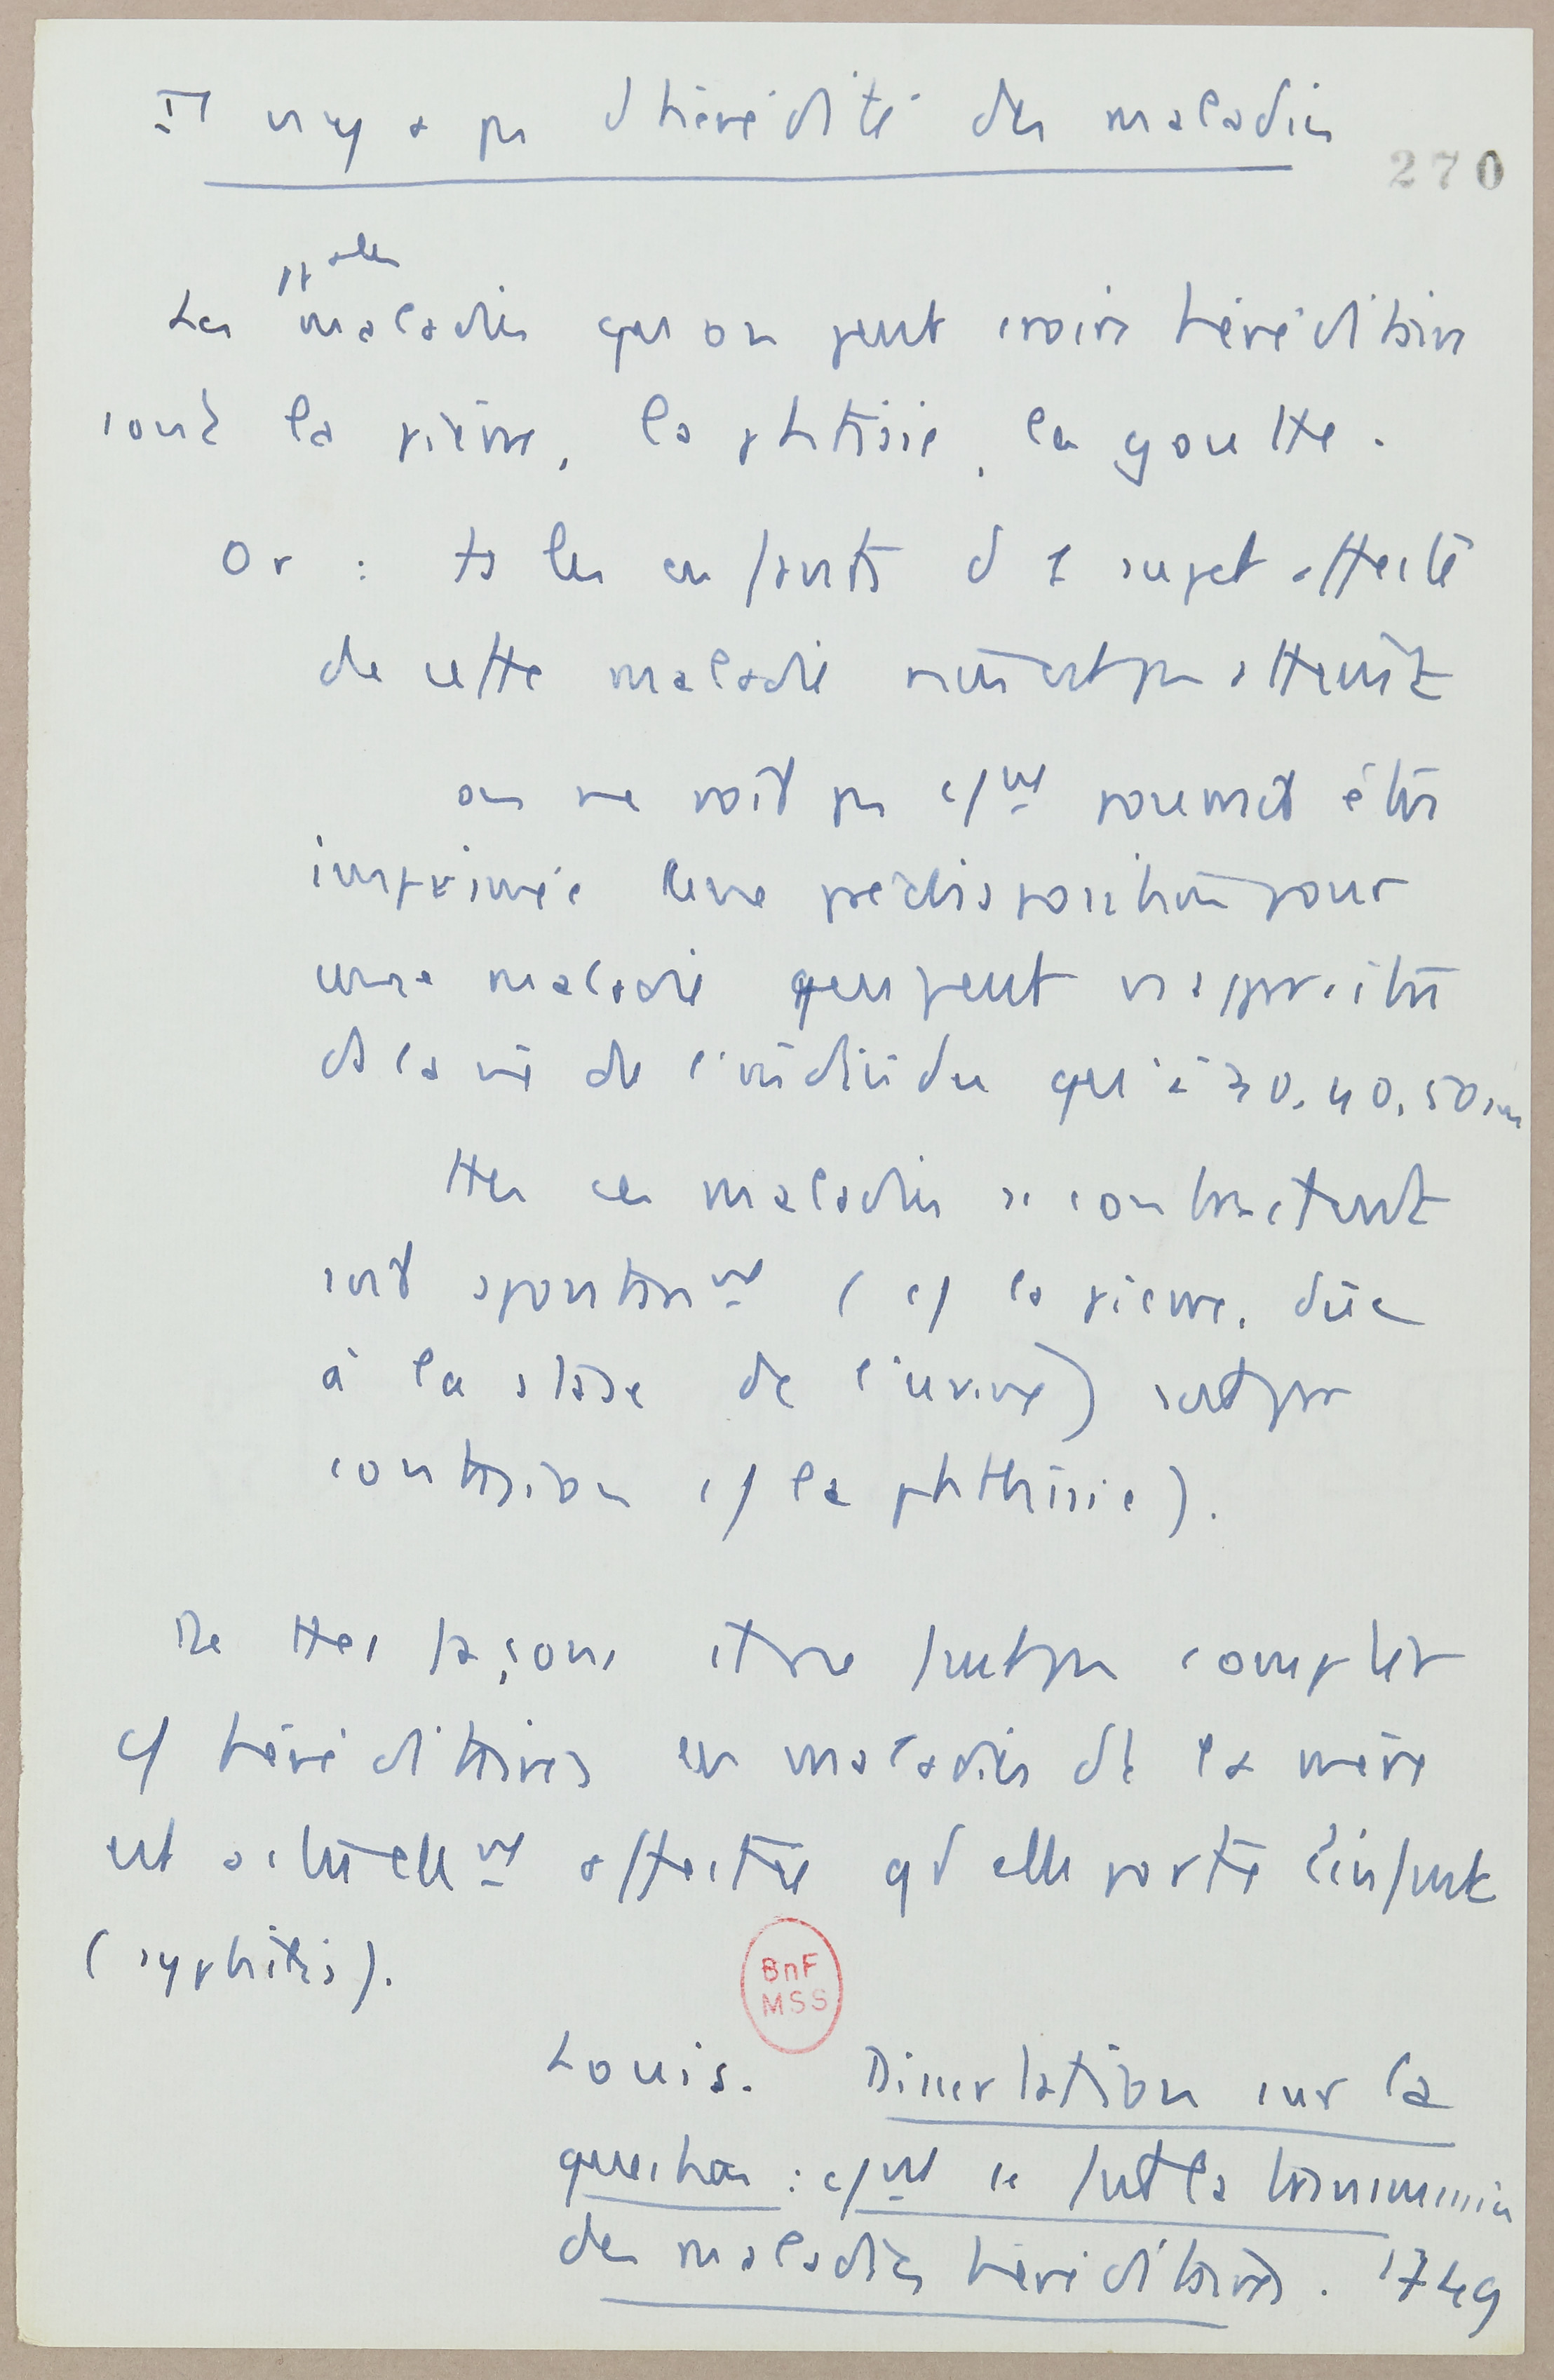 Il n'y a pas d'hérédité des maladies
270
Les "seules
maladies qu'on peut croire héréditaires
sont la pierre, la phtisie, la goutte.
Or : ts les enfants d'1 sujet affecté
de cette maladie n'en est pas atteint
on ne voit pas c/mt pourrait être
imprimée une prédisposition pour
une maladie qui peut n'apparaître
ds la vie de l'individu qu'à 30, 40, 50 ans
Ttes ces maladies se contractent
soit spontanmt (c/ la pierre, due
à la stase de l'urine) soit par
contagion c/ la phthisie).
De ttes façons il ne faut pas compter
c/ héréditaires les maladies dt la mère
est actuellemt affectée qd elle porte l'enfant
(syphilis).
BnF
MSS
Louis. Dissertation sur la
question : c/mt se fait la transmission
des maladies héréditaires. 1749